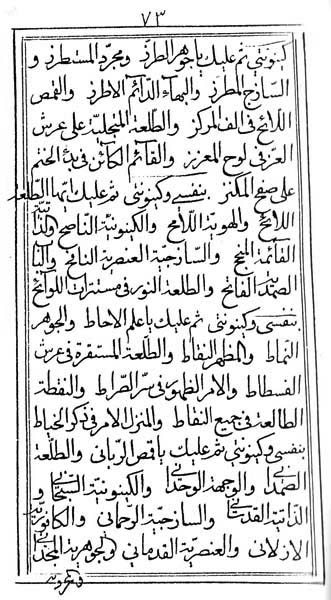 ٧٣
كينونتي ثم عليك يا جوهر الطرز ومجرد المستطرز و
السازج المطرز والبهاء الدائم الاطرز والقمص
اللائح في الف المركز والطلعة المتجلية على عرش
العز في لوح المعزيز والقائم الكائن في بدء الختم
على صفح المكنز بنفسي وكينونتي ثم عليك ايتها الطلعة
اللائح والهوية اللامح والكينونية الناصح والذاتية
القائمة والسازجية العنصرية النائح
الصمد الفائح والطلعة النور في مستترات اللوائح
بنفسي وكينونتي ثم عليك يا علم الاحاط والجوهر
النماط والمظهر النقاط والطلعة المستقرة في عرش
الفسطاط والامر الظهور في سر الصراط والنقطة
الطالعة في جميع النقاط والمنزل الامر في ذكر الخياط
بنفسي وكينونتي ثم عليك يا قمص الرباني والطلعة
الصمداني والوجهة الوحداني والكينونية السبحاني و
الذاتية القدساني والسازجية الرحماني والكافورية
الازلاني والعنصرية القدماني والجوهرية